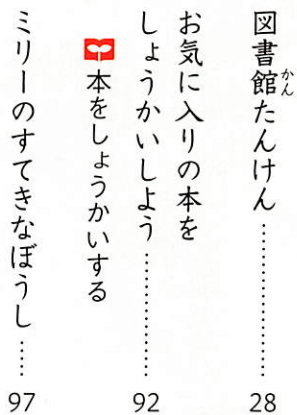 図書館たんけん……………………28
かん
お気に入りの本を
しょうかいしよう……………92
本をしょうかいする
ミリーのすてきなぼうし……97